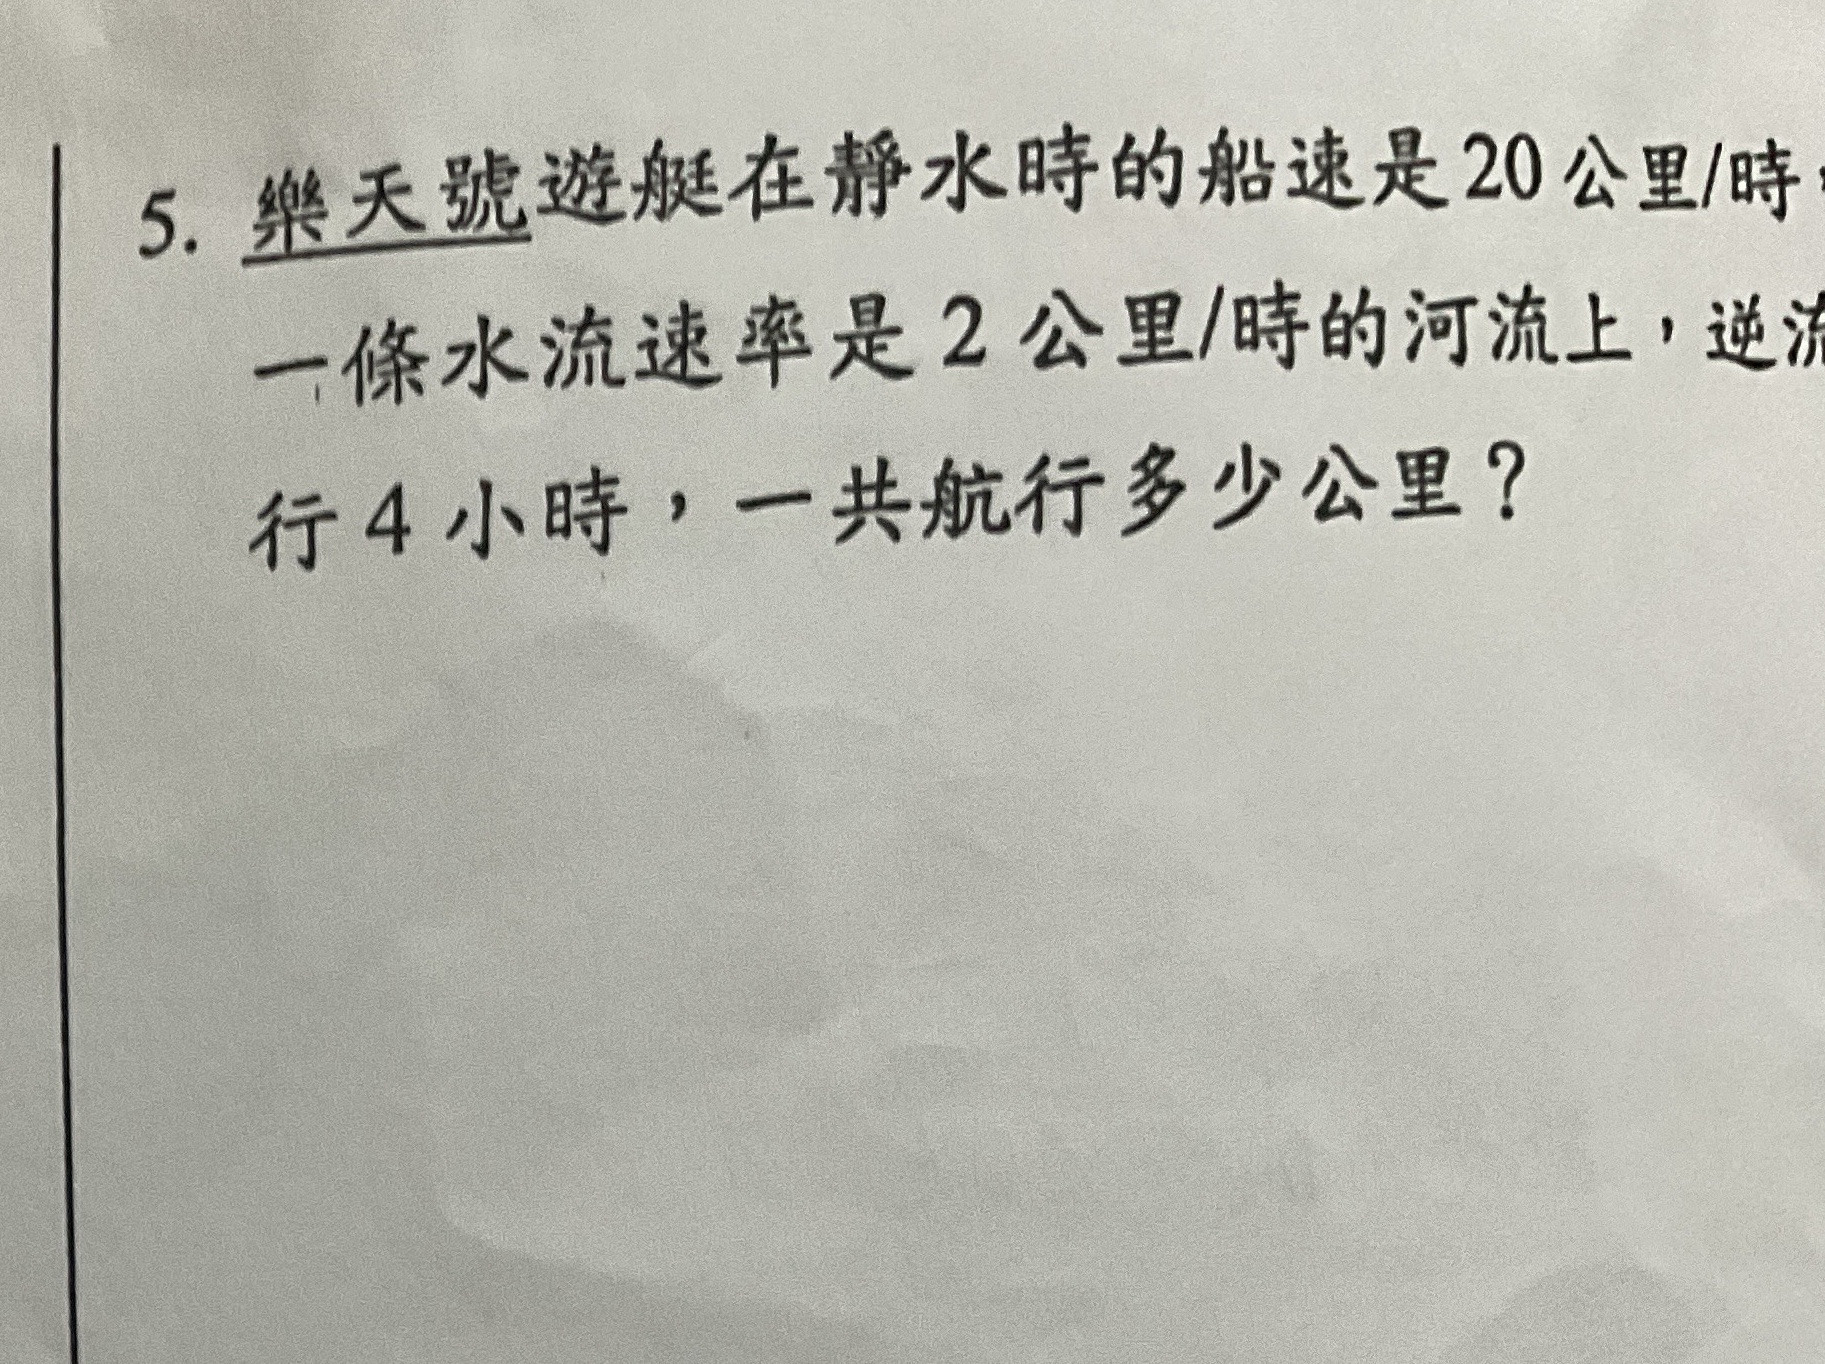 5. 樂天號遊艇在靜水時的船速是20公里/時，
一條水流速率是2公里/時的河流上，逆流
行4小時，一共航行多少公里？